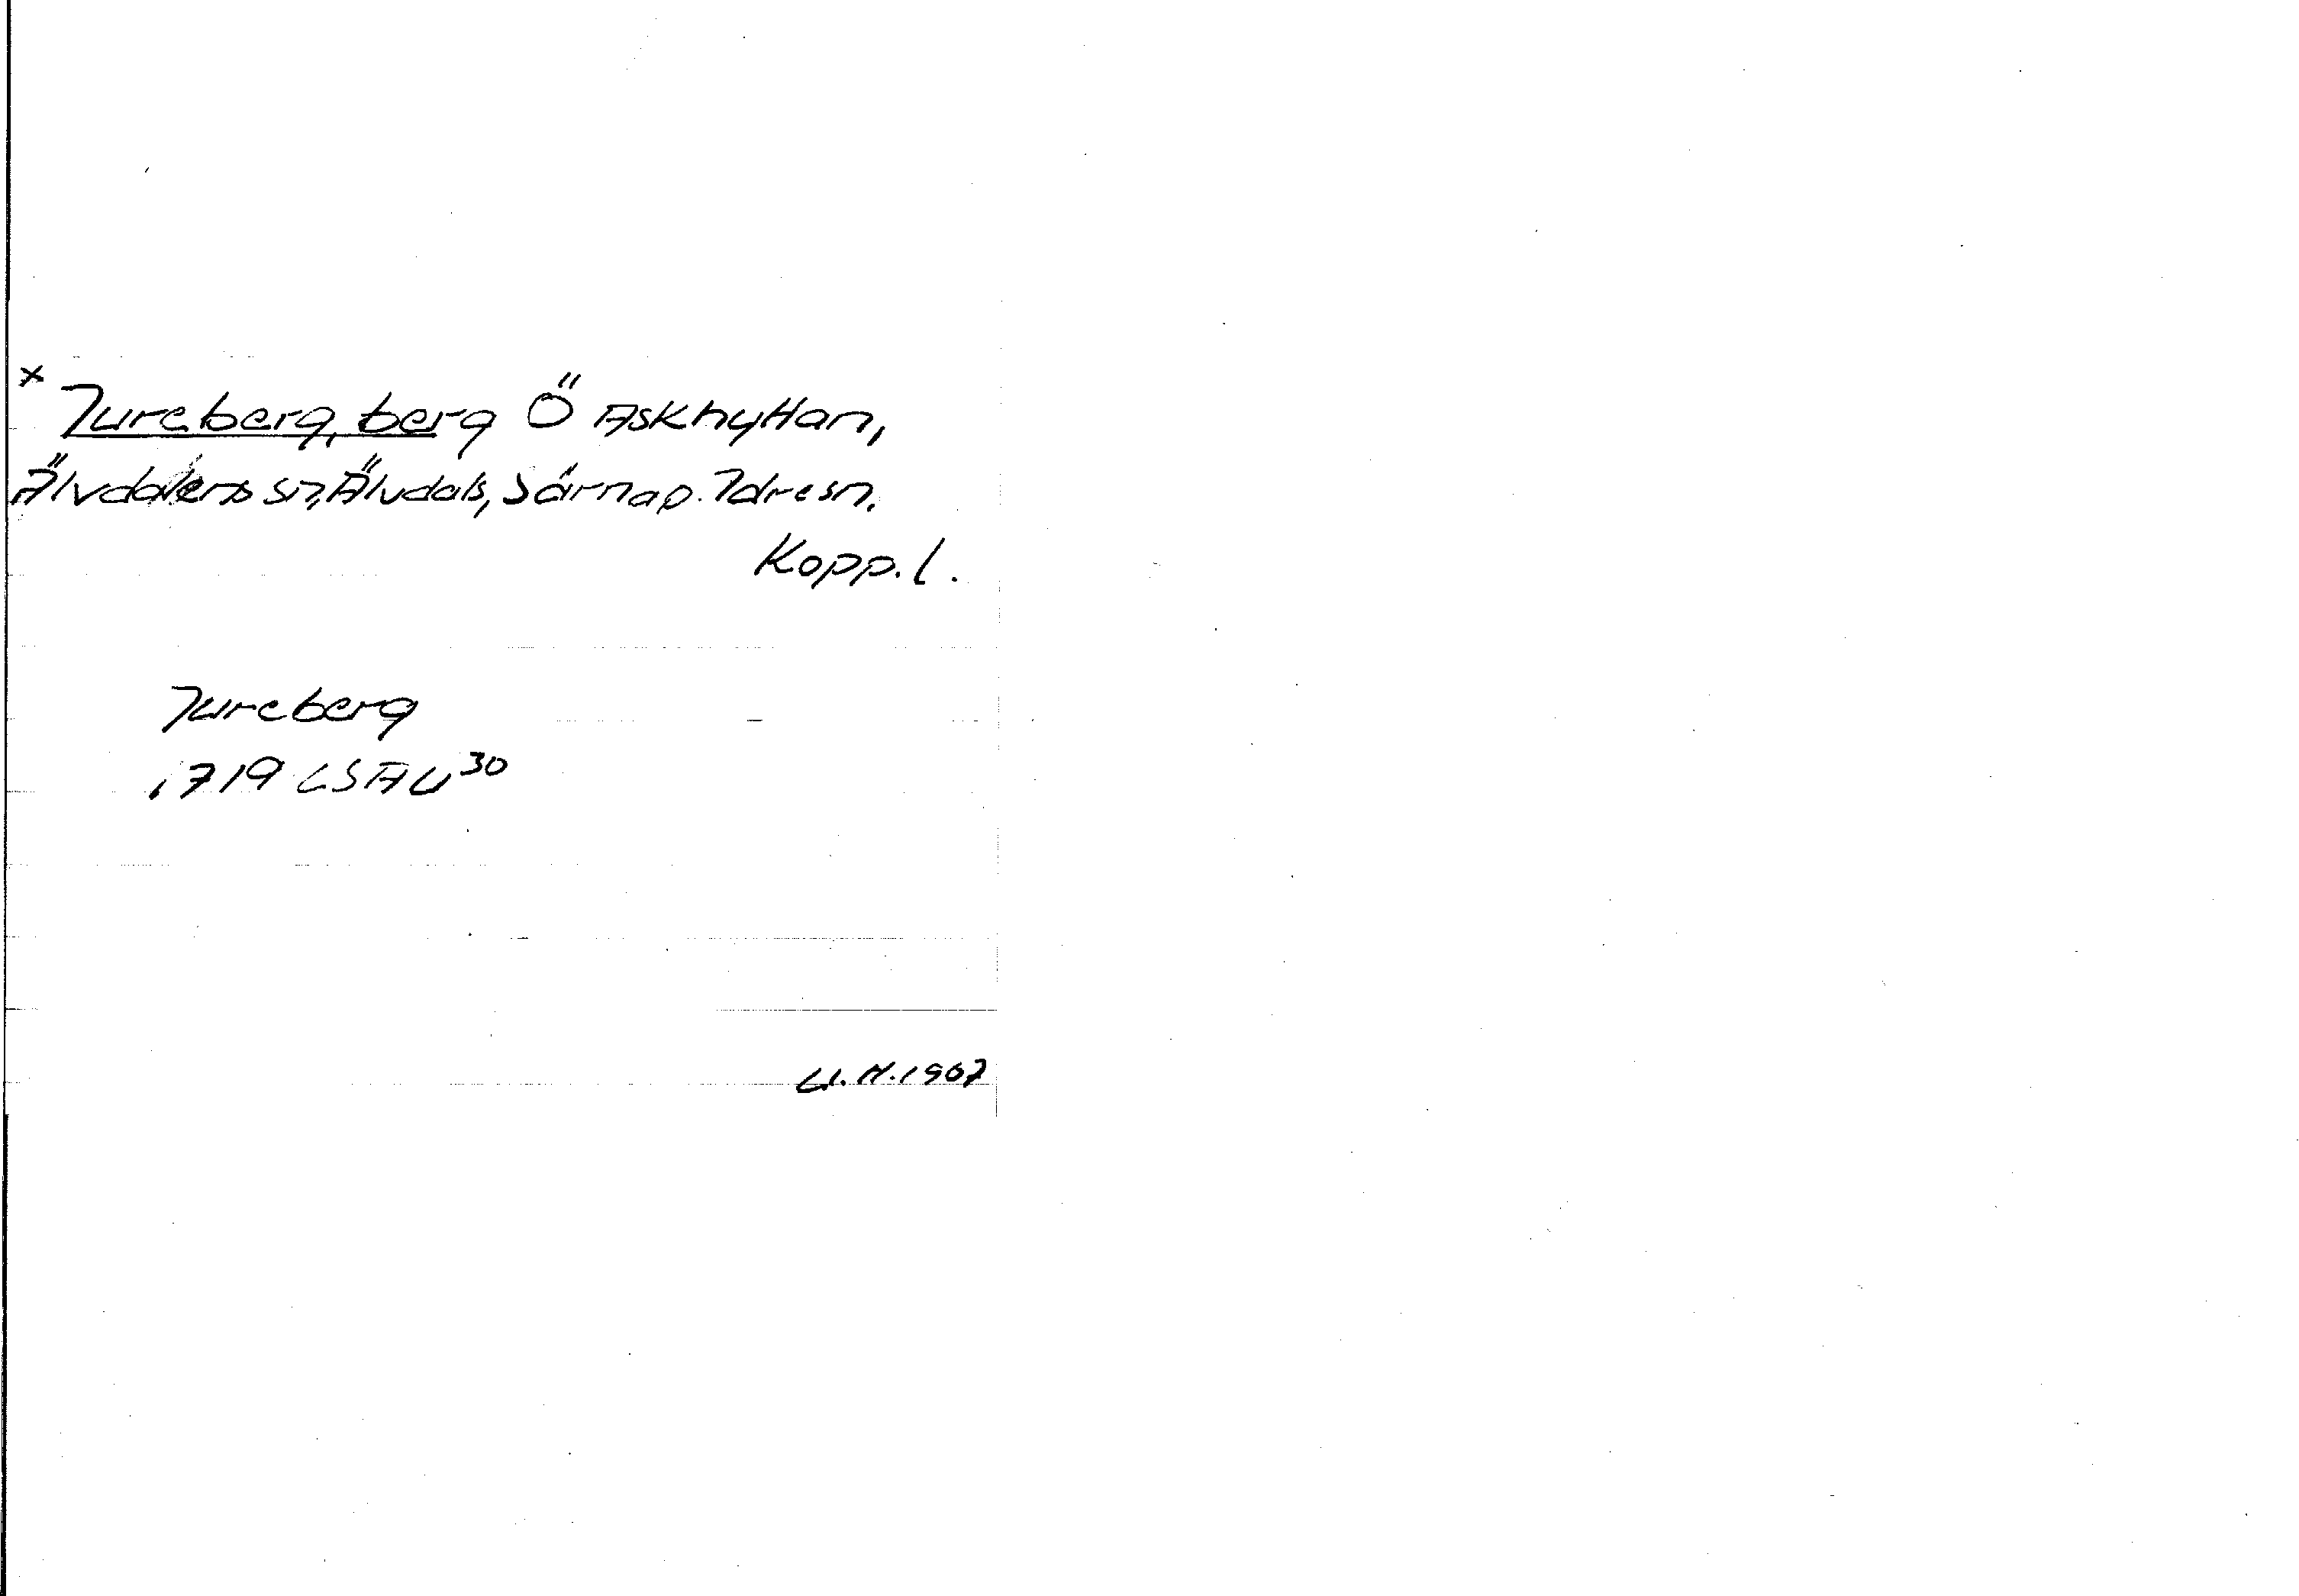 × Jureberg, berg Ö Askhyttan,
Älvdalens sn, Älvdals, Särna p. Idre sn.
Kopp. l.
Jureberg
1719 LSA U30
1967